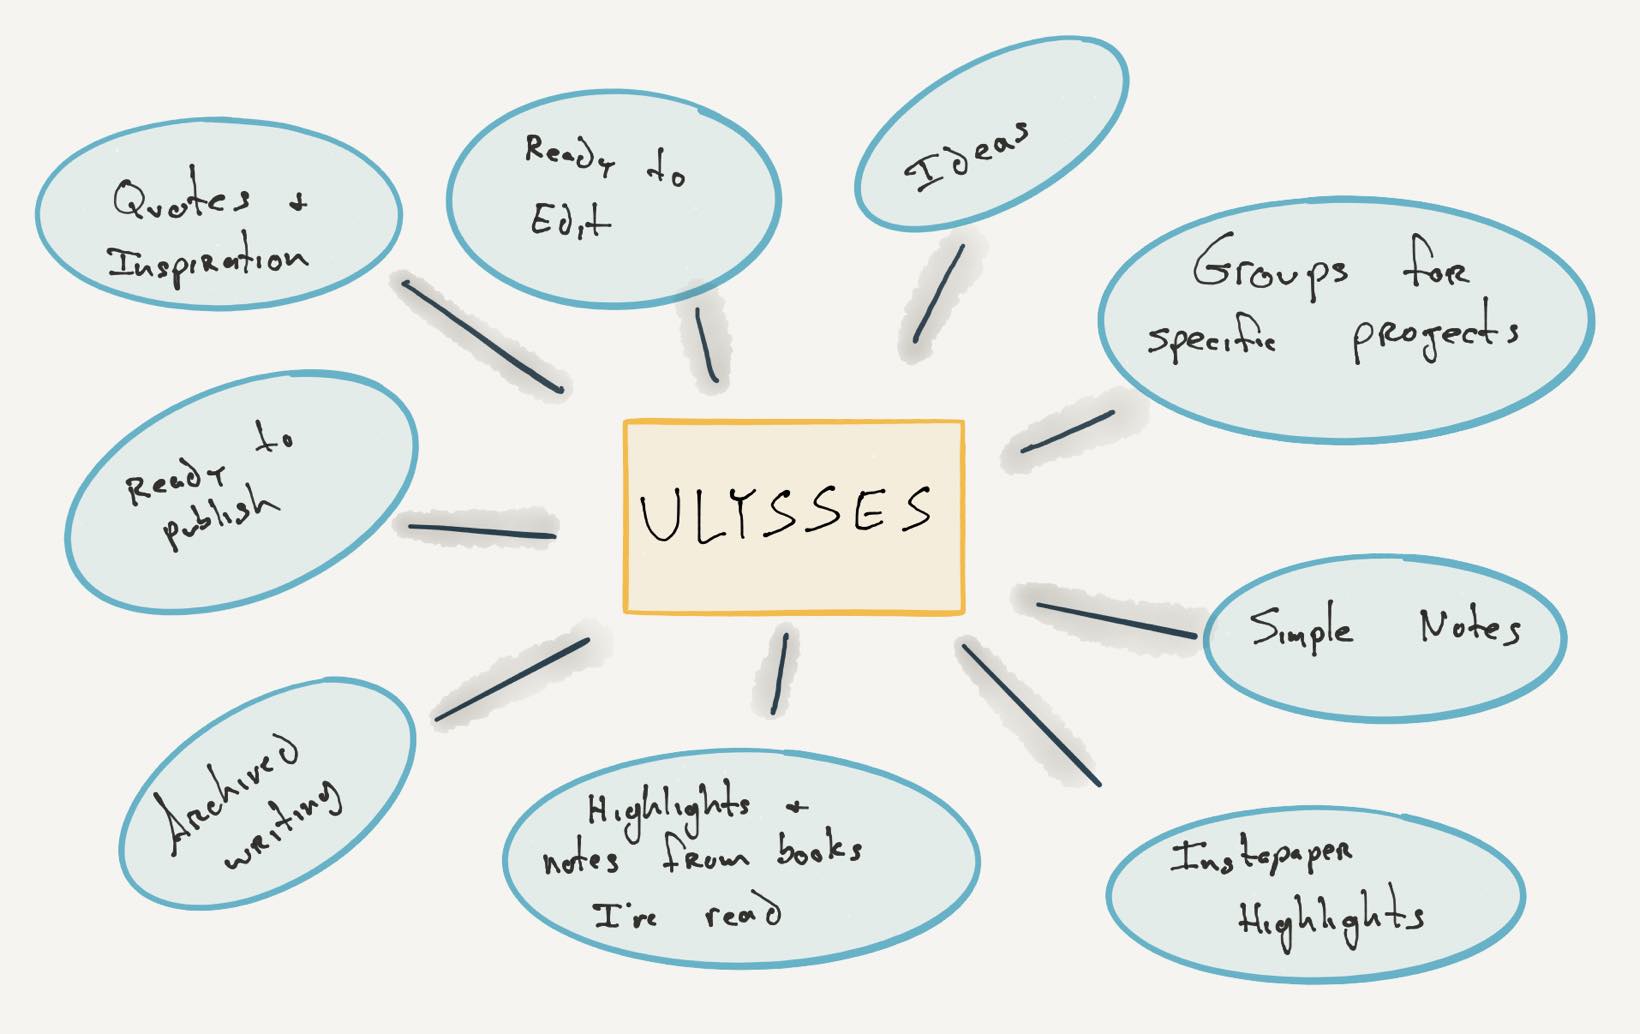 Quotes +
Inspiration
Ready to
Edit
Ideas
Groups for
specific projects
Ready to
publish
ULYSSES
Simple Notes
Archived
writing
Highlights +
notes from books
I've read
Instapaper
Highlights